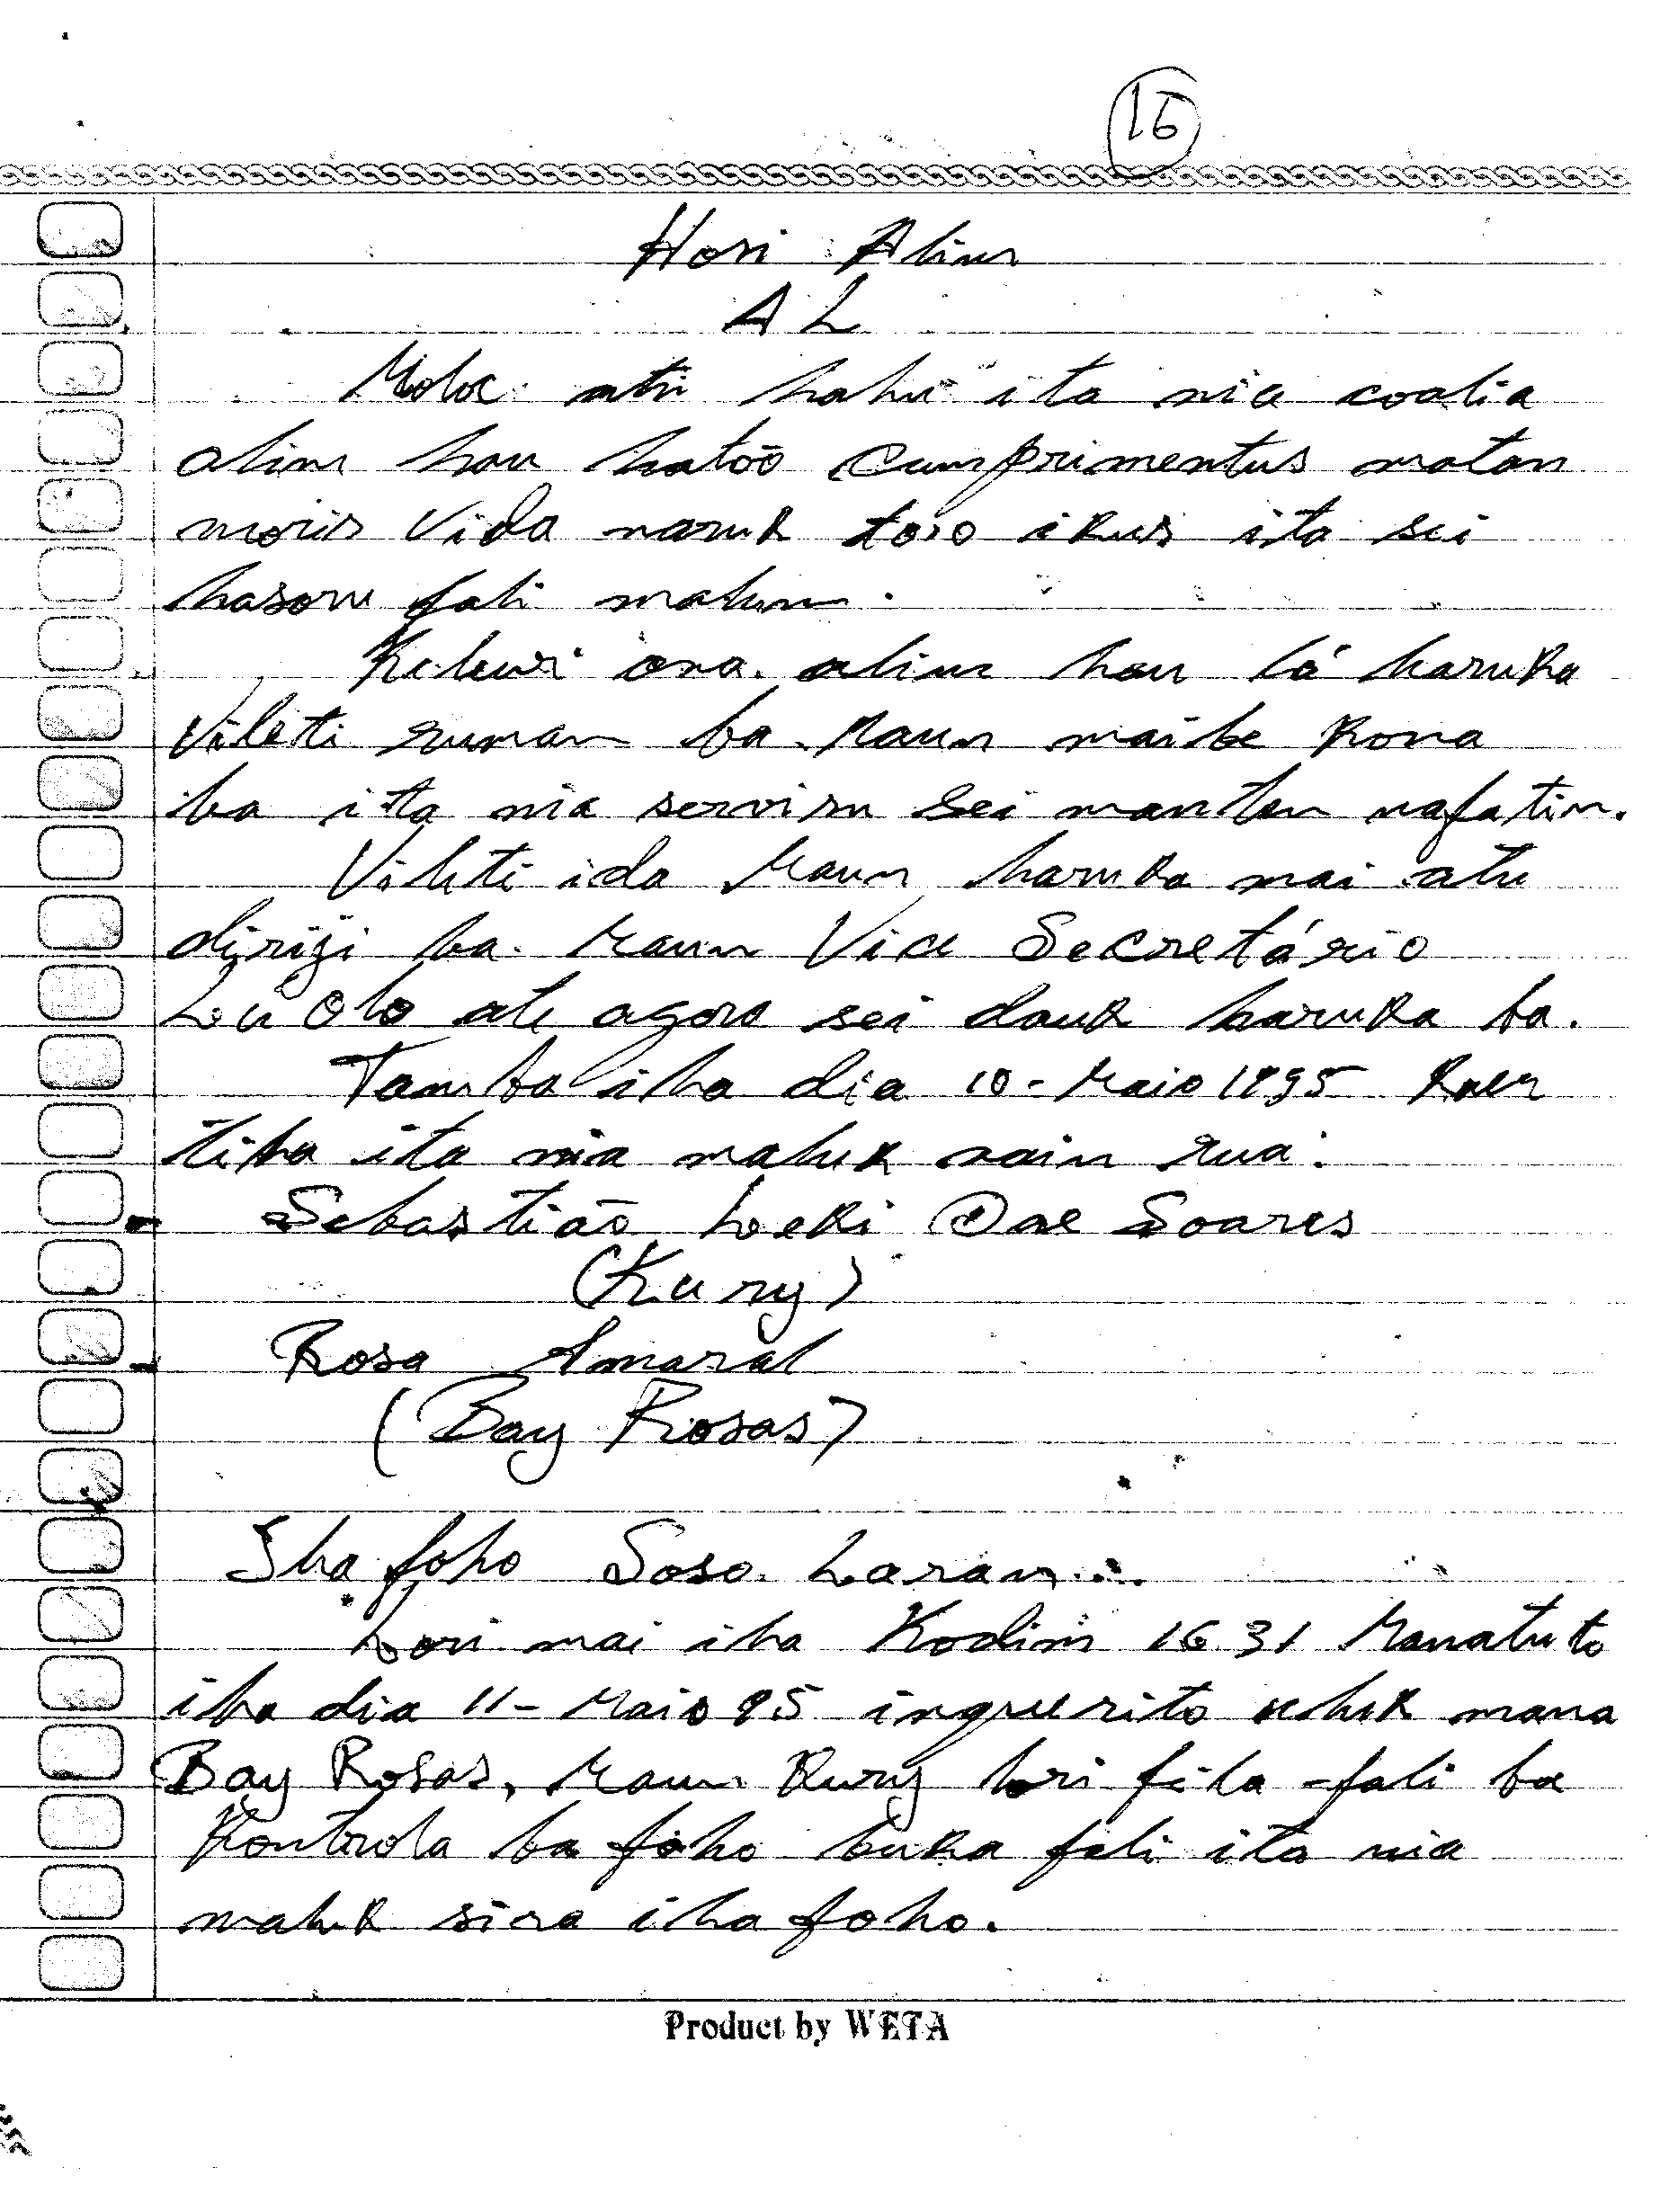 16
Hosi Alin
A L
Moloc atu hahu ita nia coalia
alin hau hatoo cumprimentus matan
moris vida naruk to'o ikus ita sei
hasoru fali malun.
Kleur ona. alin hau la haruka
Vileti ruman ba Maun maibe kona
ba ita nia servisu sei manten nafatin.
Vileti ida Maun haruka mai atu
diriji ba Maun Vice Secretário
Lu Olo ate agora sei dauk haruka ba.
Tamba iha dia 10-Maio 1995 kaer
tiha ita nia maluk nain rua:
- Sebastião Leki Dae Soares
(Kury)
- Rosa Amaral
(Bay Rosas)
Iha foho Soso Laran.
Lori mai iha Kodim 1631 Manatuto
iha dia 11-Maio 95 inquerito uluk mana
Bay Rosas, Maun Kury lori fila-fali ba
Kontrola ba foho buka fali ita nia
maluk sira iha foho.
Product by WETA